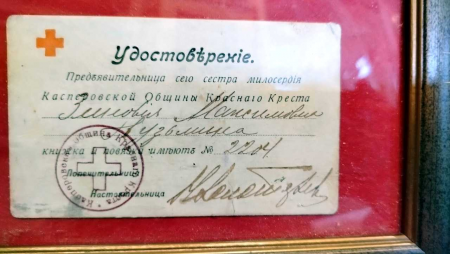 Удостовѣреніе.
Предъявительница сего сестра милосердія
Касперовской Общины Краснаго Креста
Зиновія Максимовна
книжка и повязка имѣютъ № 2204
Попечитель
Настоятельница
Касперовская Община Краснаго Креста